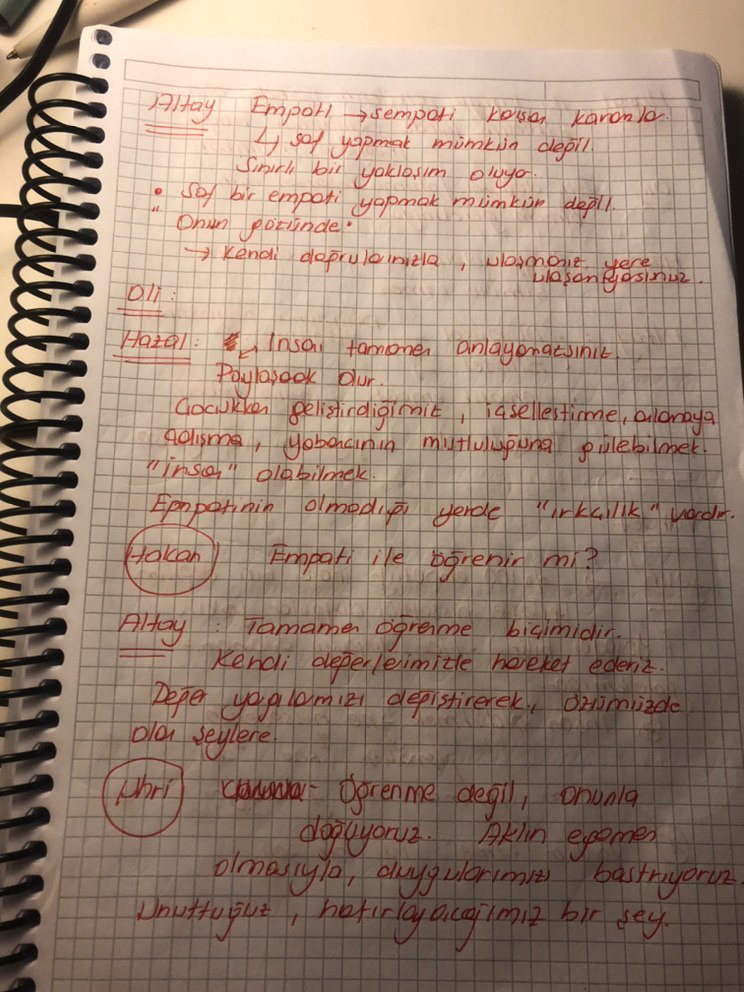 Altay Empati → sempati karışan kavramlar.
↳ saf yapmak mümkün değil.
Sınırlı bir yaklaşım oluyor.
• Saf bir empati yapmak mümkün değil.
"Onun gözünde"
→ Kendi doğrularınızla, ulaşmanız yere
ulaşamıyorsunuz.
Oli:
Hazal: İnsan tamamen anlayamazsınız.
Paylaşacak olur.
Çocukken geliştirdiğimiz, içselleştirme, anlamaya
çalışma, yabancının mutluluğuna gülebilmek.
"insan" olabilmek.
Empatinin olmadığı yerde "ırkçılık" vardır.
Hakan Empati ile öğrenir mi?
Altay: Tamamen öğrenme biçimidir.
Kendi değerlerimizle hareket ederiz.
Değer yapılamızı değiştirerek, özümüzde
olan şeylere.
Nuri - Öğrenme değil, onunla
doğuyoruz. Aklın egemen
olmasıyla, duygularımızı bastırıyoruz.
Unuttuğuz, hatırlayacağımız bir şey.